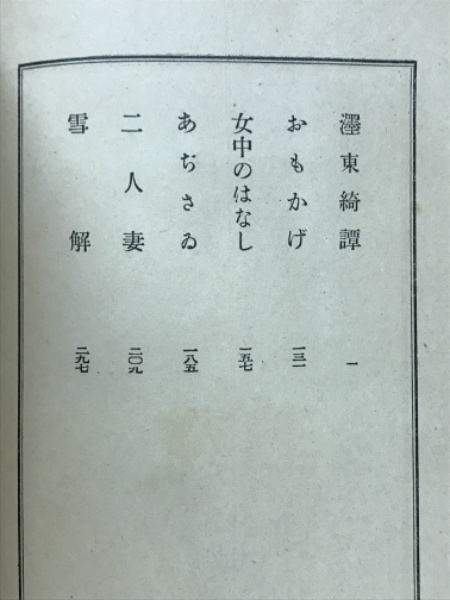 濹東綺譚 一
おもかげ 一三一
女中のはなし 一五七
あぢさゐ 一八五
二人妻 二〇九
雪解 二九七